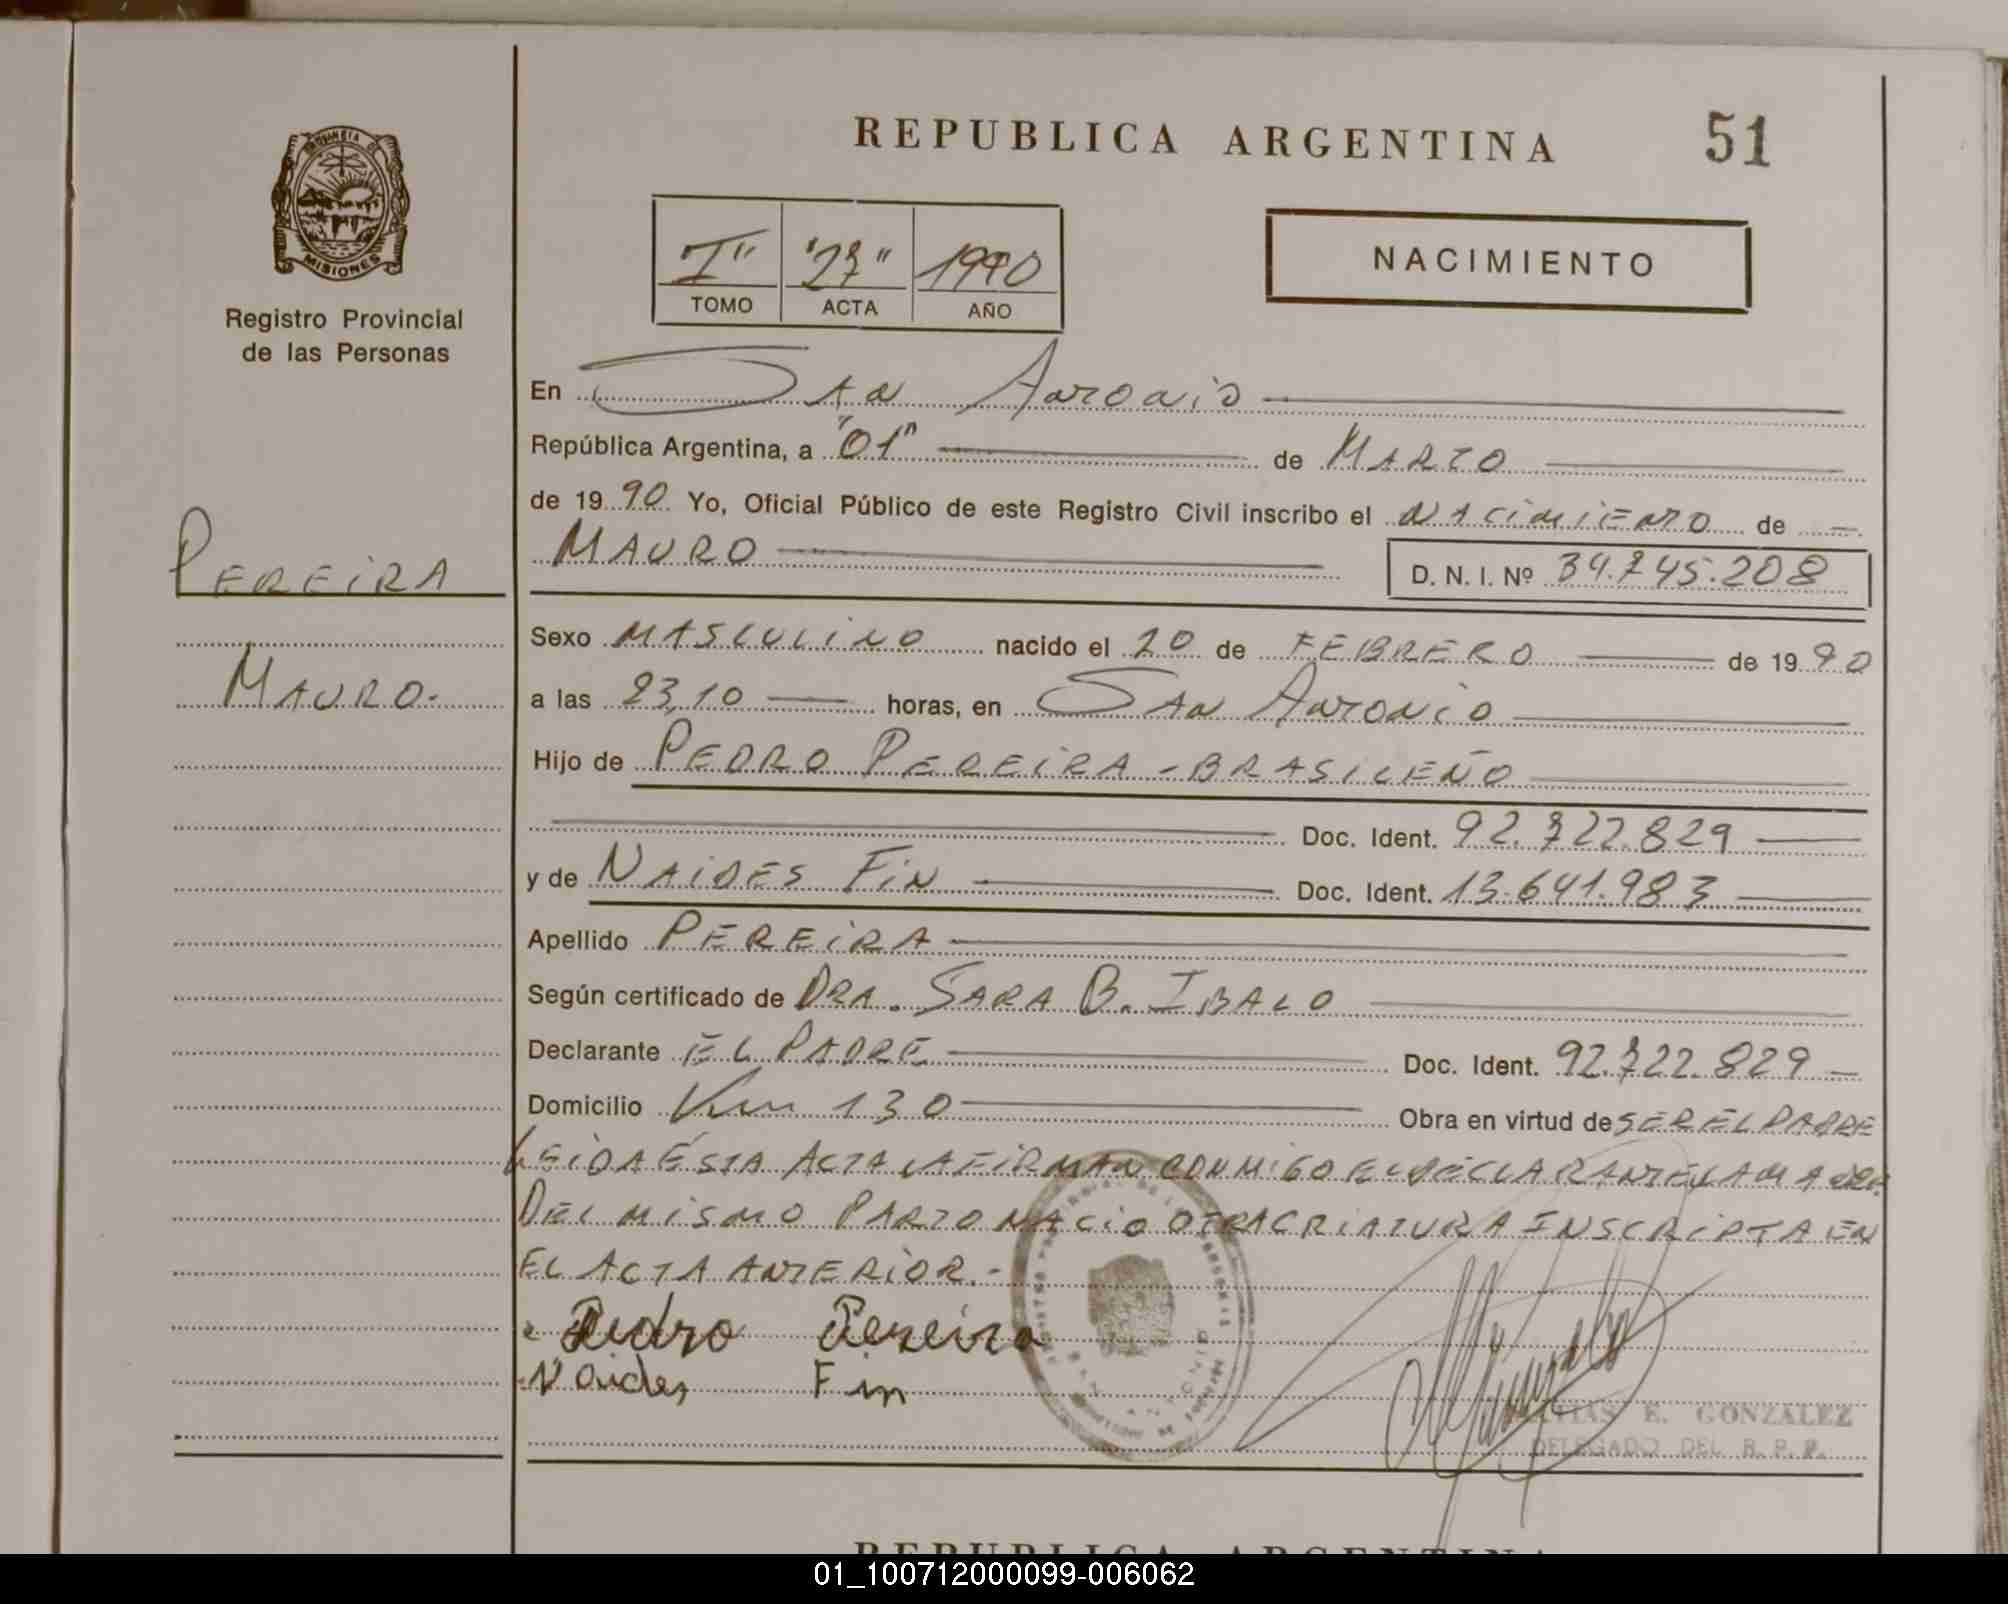 REPUBLICA ARGENTINA
51
PROVINCIA DE
MISIONES
Registro Provincial
de las Personas
"I" "27" 1990
TOMO ACTA AÑO
NACIMIENTO
En SAN ANTONIO
República Argentina, a "01" de MARZO
de 1990 Yo, Oficial Público de este Registro Civil inscribo el NACIMIENTO de
MAURO D. N. I. Nº 34.745.208
PEREIRA
MAURO.
Sexo MASCULINO nacido el 20 de FEBRERO de 1990
a las 23,10 horas, en SAN ANTONIO
Hijo de PEDRO PEREIRA - BRASILEÑO
Doc. Ident. 92.722.829
y de NAIDES FIN Doc. Ident. 13.641.983
Apellido PEREIRA
Según certificado de DRA. SARA B. IBALO
Declarante EL PADRE Doc. Ident. 92.722.829
Domicilio Km 130 Obra en virtud de SER EL PADRE
LEIDA ÉSTA ACTA LA FIRMAN CONMIGO EL DECLARANTE LA MADRE
DEL MISMO PARTO NACIO OTRA CRIATURA INSCRIPTA EN
EL ACTA ANTERIOR.-
Pedro Pereira
Naides Fin
E. GONZALEZ
DELEGADO DEL R. P. P.
REPUBLICA ARGENTINA
01_100712000099-006062